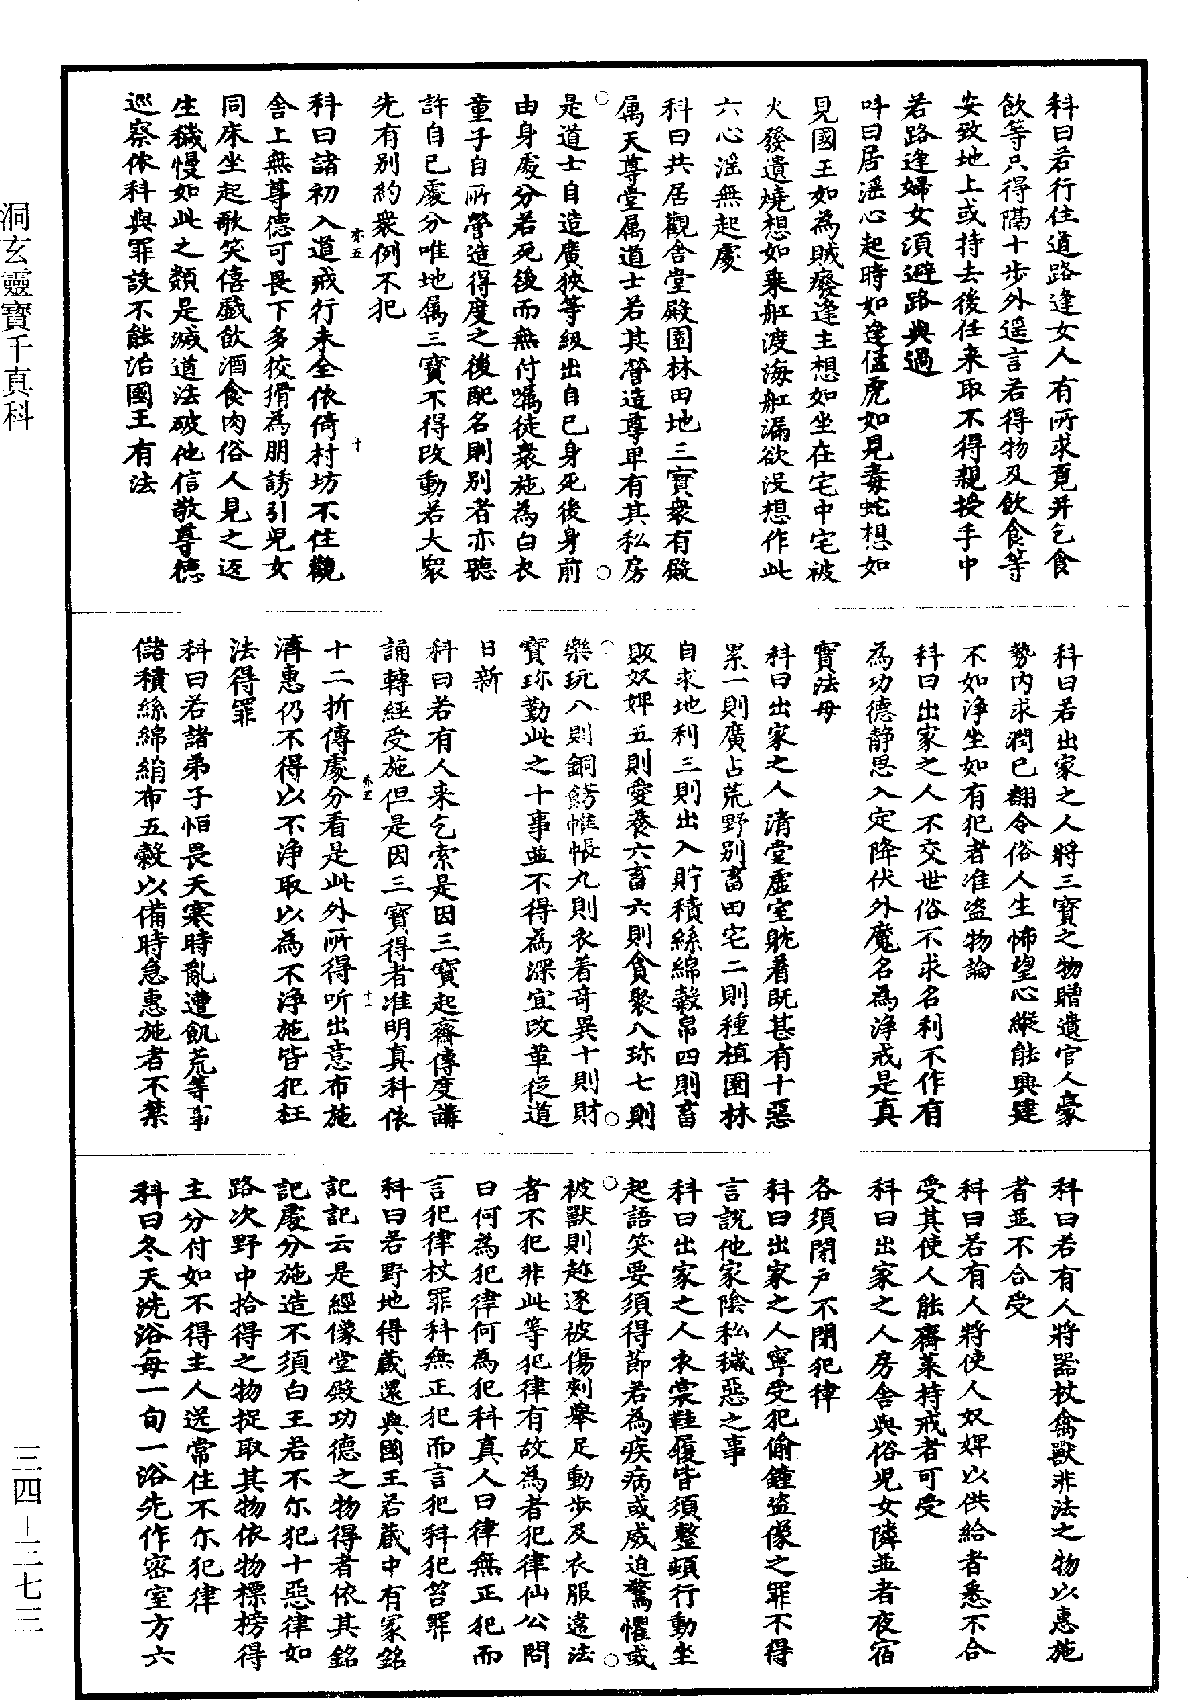 科曰若行住道路逢女人有所求覓并乞食
飲等只得隔十步外遥言若得物及飲食等
安致地上或持去後任来取不得親授手中
若路逢婦女須避路與過
呌曰居滛心起時如逢猛虎如見毒蛇想如
見國王如為賊癈逢主想如坐在宅中宅被
火發遺燒想如乗舡渡海舡漏欲没想作此
六心滛無起處
科曰共居觀舍堂殿園林田地三寳衆有殿
属天尊堂属道士若其營造尊卑有其私房
是道士自造廣狹等級出自已身死後身前
由身處分若死後而無付囑徒衆施為白衣
童子自所營造得度之後配名則别者亦聽
許自已處分唯地属三寳不得改動若大衆
先有别約衆例不犯
科曰諸初入道戒行未全依倚村坊不住觀
舍上無尊德可畏下多狡猾為朋誘引兒女
同床坐起歌笑僖戲飲酒食肉俗人見之迊
生穢慢如此之類是滅道法破他信敬尊德
巡察依科與罪設不能治國王有法
科曰若出家之人將三寳之物贈遺官人豪
勢内求潤已翻令俗人生怖望心縱能興建
不如浄坐如有犯者准盗物論
科曰出家之人不交世俗不求名利不作有
為功德静思入定降伏外魔名為浄戒是真
寳法母
科曰出家之人清堂虚室躭着既甚有十惡
累一則廣占荒野别畜田宅二則種植園林
自求地利三則出入貯積絲綿穀帛四則畜
販奴婢五則愛養六畜六則貪聚八珎七則
樂玩八則銅鎊帷帳九則衣着竒異十則財
寳珎勤此之十事並不得為深宜改革従道
日新
科曰若有人来乞索是因三寳起齋傳度講
誦轉經受施但是因三寳得者准明真科依
十二折傳處分看是此外所得听出意布施
濟惠仍不得以不浄取以為不浄施皆犯枉
法得罪
科曰若諸弟子怕畏天寒時亂遭飢荒等事
儲積絲綿絹布五穀以備時急惠施者不禁
科曰若有人將器杖禽獸非法之物以惠施
者並不合受
科曰若有人將使人奴婢以供給者悉不合
受其使人能齋菜持戒者可受
科曰出家之人房舍與俗兒女隣並者夜宿
各須閉戸不閉犯律
科曰出家之人寧受犯偷鍾盗像之罪不得
言說他家陰私穢惡之事
科曰出家之人衣裳鞋履皆須整頓行動坐
起語笑要須得節若為疾病或威迫驚懼或
被獸則趂逐被傷刾舉足動步及衣服違法
者不犯非此等犯律有故為者犯律仙公問
曰何為犯律何為犯科真人曰律無正犯而
言犯律杖罪科無正犯而言犯科犯笞罪
科曰若野地得藏還與國王若藏中有冢銘
記記云是經像堂殿功德之物得者依其銘
記處分施造不須白王若不尓犯十惡律如
路次野中拾得之物捉取其物依物標榜得
主分付如不得主人送常住不尓犯律
科曰冬天洗浴每一旬一浴先作密室方六
洞玄靈寶千真科
三四—三七三